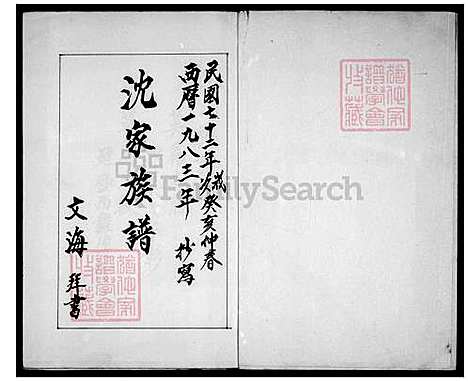 民國七十二年歲次癸亥仲春
西曆一九八三年 抄寫
沈家族譜
文海 拜書
FamilySearch